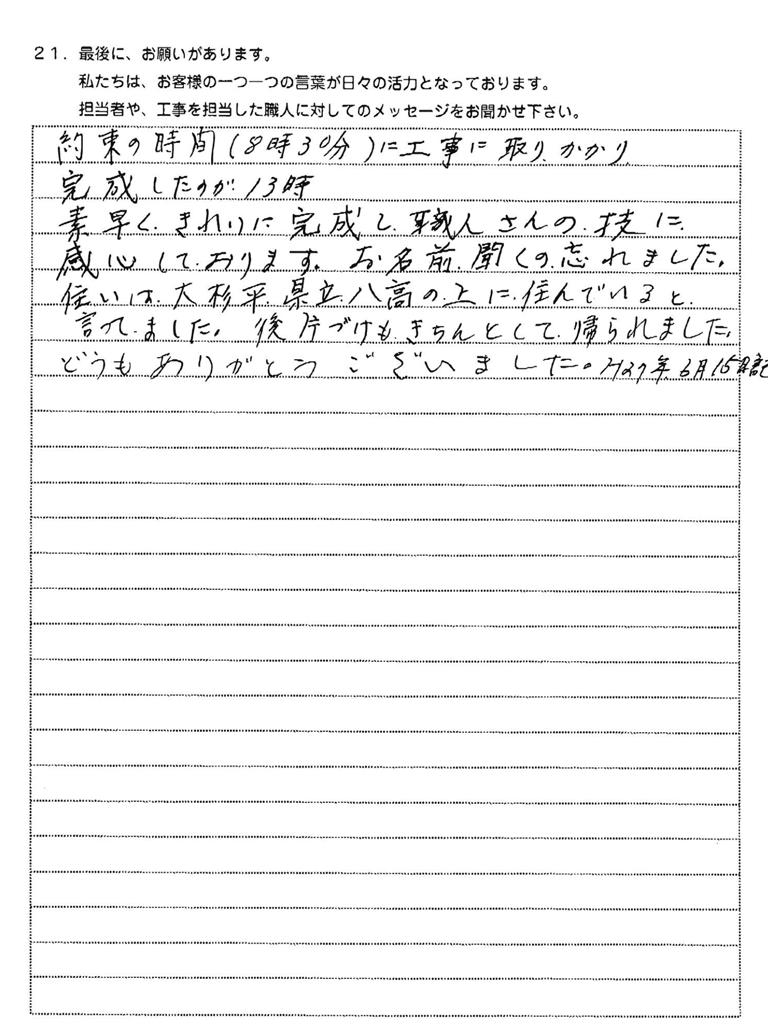 21．最後に、お願いがあります。
私たちは、お客様の一つ一つの言葉が日々の活力となっております。
担当者や、工事を担当した職人に対してのメッセージをお聞かせ下さい。
約束の時間(8時30分)に工事に取りかかり
完成したのが13時
素早く、きれいに完成し、職人さんの技に
感心しております。お名前聞くの忘れました。
住いは大杉平県立八高の上に住んでいると
言ってました。後片づけもきちんとして帰られました。
どうもありがとうございました。H27年6月15日記